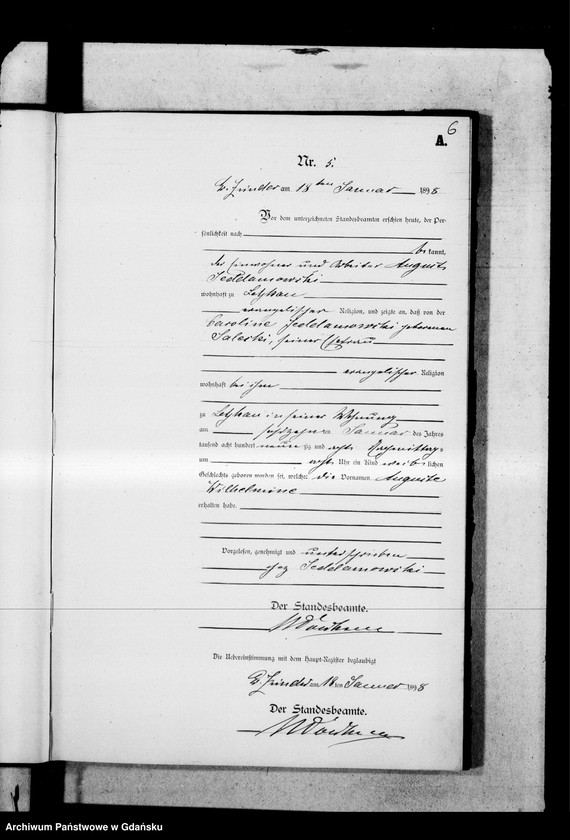 6
A.
Nr. 5.
Gr. Zünder am 18ten Januar 1898
Vor dem unterzeichneten Standesbeamten erschien heute, der Per-
sönlichkeit nach
be kannt,
der Einwohner und Arbeiter August
Seddamowski
wohnhaft zu Letzkau
evangelischer Religion, und zeigte an, daß von der
Caroline Seddanowski geborenen
Saleski, seiner Ehefrau
evangelischer Religion
wohnhaft bei ihm
zu Letzkau in seiner Wohnung
am sechszehn Januar des Jahres
tausend acht hundert neun zig und acht Nachmittags
um acht Uhr ein Kind weib lichen
Geschlechts geboren worden sei, welches die Vornamen Auguste
Wilhelmine
erhalten habe.
Vorgelesen, genehmigt und unterschrieben
gez Seddamowski
Der Standesbeamte.
Die Uebereinstimmung mit dem Haupt-Register beglaubigt
Gr. Zünder am 18 ten Januar 1898
Der Standesbeamte.
Archiwum Państwowe w Gdańsku